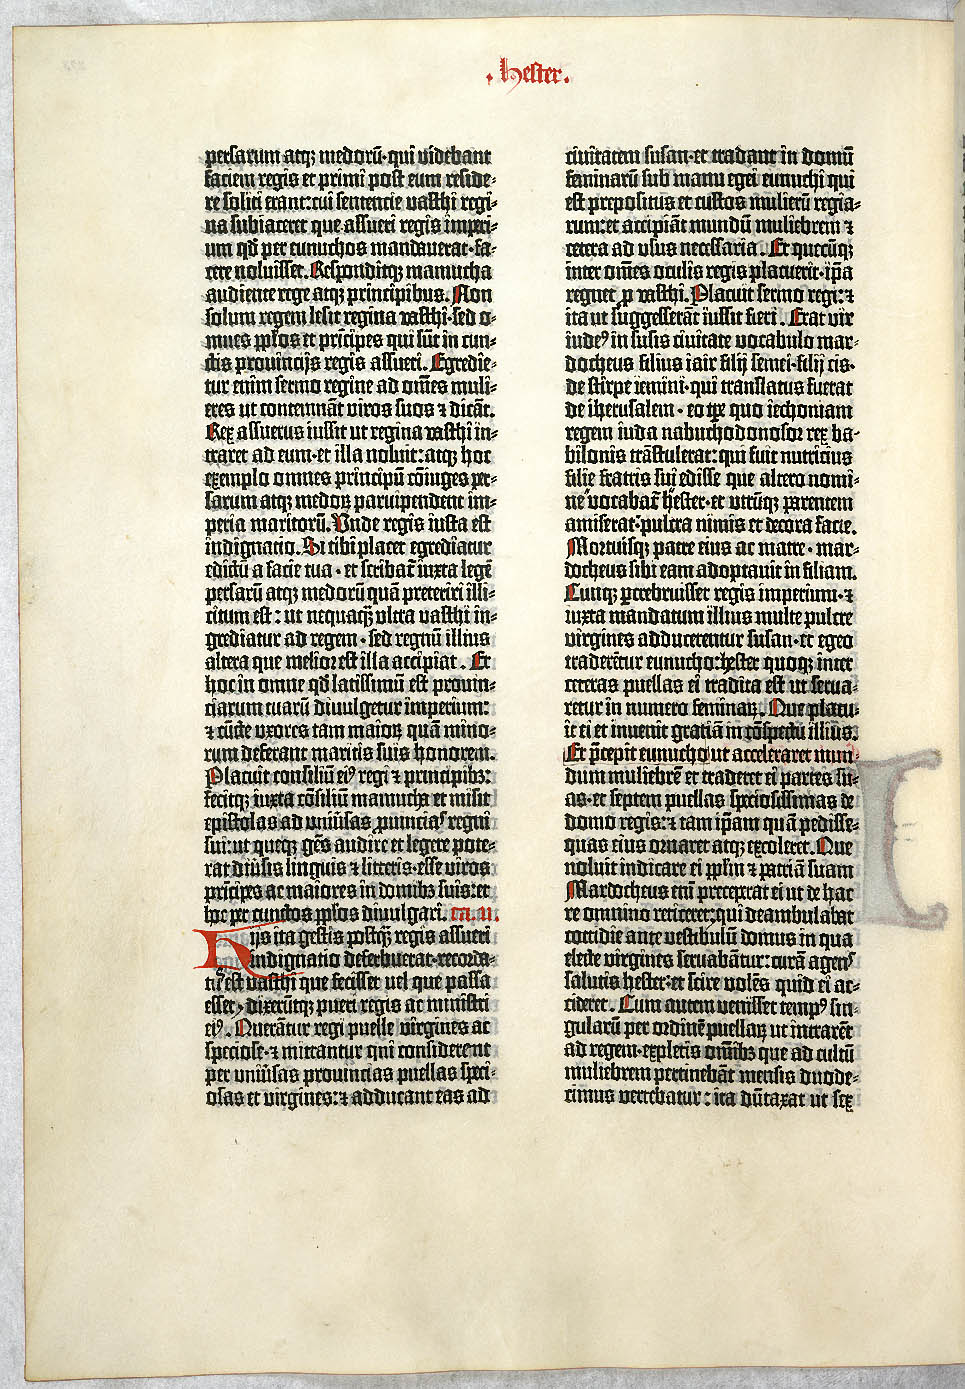 . hester.
persarum atq; medorū·qui videbant
faciem regis et primi post eum reside-
re soliti erant: cui sententie vasthi regi-
na subiaceret que assueri regis imperi-
um qd̄ per eunuchos mandauerat·fa-
cere noluisset. Responditq; mamucha
audiente rege atq; principibus. Non
solum regem lesit regina vasthi·sed o-
mnes pp̄los et prīcipes qui sūt in cun-
ctis prouincijs regis assueri. Egredie-
tur enim sermo regine ad om̄es muli-
eres ut contemnāt viros suos ⁊ dicāt.
Rex assuerus iussit ut regina vasthi in-
traret ad eum·et illa noluit: atq; hoc
exemplo omnes principū cōiuges per-
sarum atq; medoꝝ paruipendent im-
peria maritorū. Unde regis iusta est
indignatio. Si tibi placet egrediatur
edictū a facie tua·et scribat̄ iuxta legē
persarū atq; medorū quā preteriri illi-
citum est: ut nequaq̄ ultra vasthi in-
grediatur ad regem·sed regnū illius
altera que melior est illa accipiat. Et
hoc in omne qd̄ latissimū est prouin-
ciarum tuarū diuulgetur imperium:
⁊ cūcte uxores tam maioꝝ quā mino-
rum deferant maritis suis honorem.
Placuit consiliū ei⁹ regi ⁊ principibꝫ:
fecitq; iuxta cōsiliū mamucha et misit
epistolas ad uniūsas ꝓuincias regni
sui: ut queq; gēs audire et legere pote-
rat diūsis linguis ⁊ litteris·esse viros
prīcipes ac maiores in domibꝫ suis: et
hoc per cunctos pp̄los diuulgari. ca. II.
Hijs ita gestis postq̄ regis assueri
indignatio deferbuerat·recorda-
t⁹ est vasthi que fecisset uel que passa
esset, dixerūtq; pueri regis ac ministri
ei⁹. Querātur regi puelle virgines ac
speciose·⁊ mittantur qui considerent
per uniūsas prouincias puellas speci-
osas et virgines: ⁊ adducant eas ad
ciuitatem susan·et tradant in domū
feminarū sub manu egei eunuchi qui
est prepositus et custos mulierū regia-
rum: et accipiāt mundū muliebrem ⁊
cetera ad usus necessaria. Et quecūq;
inter om̄es oculis regis placuerit·ip̄a
regnet ꝓ vasthi. Placuit sermo regi: ⁊
ita ut suggesserāt iussit fieri. Erat vir
iude⁹ in susis ciuitate vocabulo mar-
docheus filius iair filij semei·filij cis·
de stirpe iemini·qui translatus fuerat
de iherusalem·eo tꝑe quo iechoniam
regem iuda nabuchodonosor rex ba-
bilonis trāstulerat: qui fuit nutricius
filie fratris sui edisse que altero nomi-
ne vocabat̄ hester·et utrūq; parentem
amiserat: pulcra nimis et decora facie.
Mortuisq; patre eius ac matre·mar-
docheus sibi eam adoptauit in filiam.
Cunq; ꝑcrebruisset regis imperium·⁊
iuxta mandatum illius multe pulcre
virgines adducerentur susan·et egeo
traderētur eunucho: hester quoq; inter
ceteras puellas ei tradita est ut serua-
retur in numero feminaꝝ. Que placu-
it ei et inuenit gratiā in cōspectu illius.
Et p̄cepit eunucho ut acceleraret mun-
dum muliebrē et traderet ei partes su-
as·et septem puellas speciosissimas de
domo regis: ⁊ tam ip̄am quā pedisse-
quas eius ornaret atq; excoleret. Que
noluit indicare ei pp̄lm ⁊ patriā suam
Mardocheus eni̅ preceperat ei ut de hac
re omnino reticeret: qui deambulabat
cottidie ante vestibulū domus in qua
electe virgines seruabātur: curā agens
salutis hester·et scire volēs quid ei ac-
cideret. Cum autem venisset temp⁹ sin-
gularū per ordinē puellaꝝ ut intrarēt
ad regem·expletis om̄ibꝫ que ad cultū
muliebrem pertinebāt mensis duode-
cimus vertebatur: ita dūtaxat ut sex